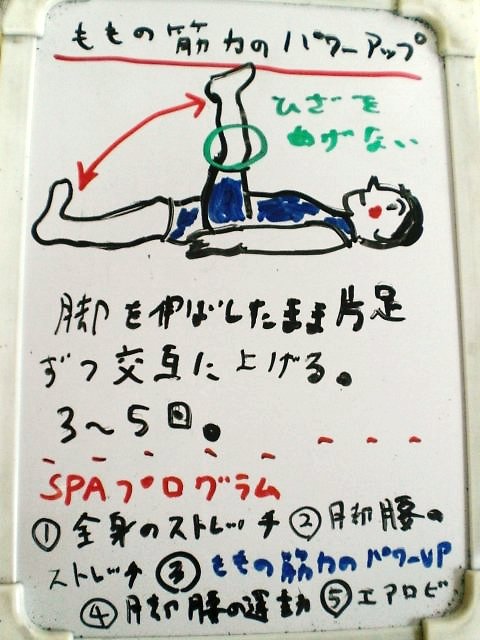 ももの筋力のパワーアップ
ひざを
曲げない
脚を伸ばしたまま片足
ずつ交互に上げる。
3〜5回。
SPAプログラム
①全身のストレッチ②脚腰の
ストレッチ③ももの筋力のパワーUP
④脚腰の運動⑤エアロビ